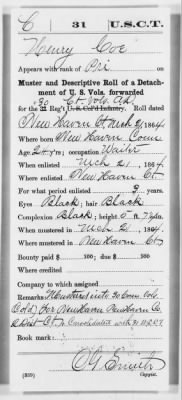 C | 31 | U.S.C.T.
Henry Coe
Appears with rank of Pri
on
Muster and Descriptive Roll of a Detach-
ment of U. S. Vols. forwarded
30 Ct. Vols.
for the 31 Reg't U. S. Col'd Infantry. Roll dated
New Haven Ct. Mch 21, 1864.
Where born New Haven Conn
Age 24 yrs; occupation Waiter
When enlisted Mch 21, 1864
Where enlisted New Haven Ct
For what period enlisted 3 years.
Eyes Black; hair Black
Complexion Black; height 5 ft. 7½ in.
When mustered in Mch 21, 1864.
Where mustered in New Haven Ct.
Bounty paid $ 100; due $ 100
Where credited
Company to which assigned
Remarks: Mustered into 30 Conn. Vols
Cold) for New Haven New Haven Co
2 Dist Ct. Consolidated with 31 U.S.C.T.
Book mark:
(339) Copyist.